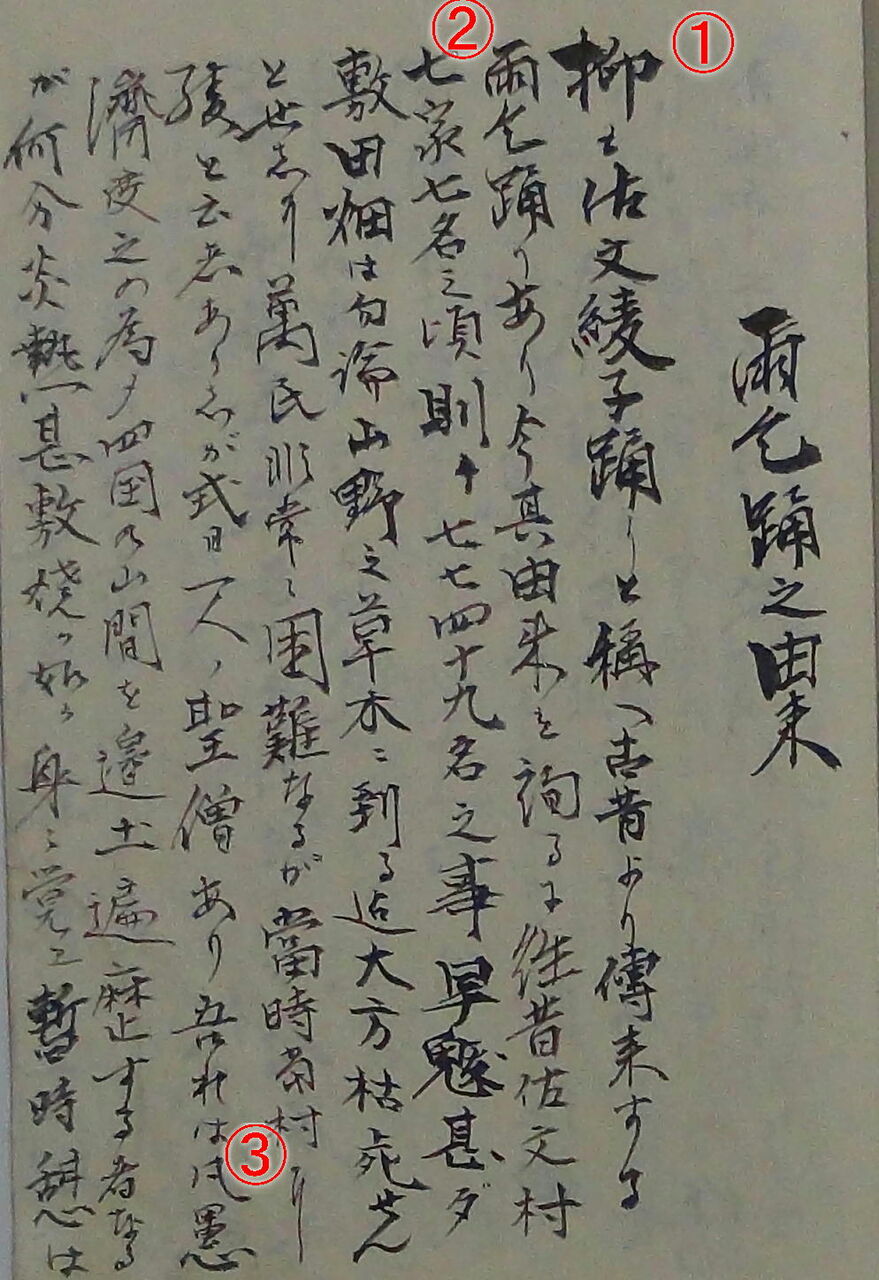 ①
②
③
雨乞踊之由来
抑も佐文綾子踊りと稱へ古昔より傳来する
雨乞踊りあり今其由来を詢るに往昔佐文村
七家七名之頃則チ七七四十九名之事旱魃甚ダ
敷田畑は勿論山野之草木ニ到る迠大方枯死せん
と世しり萬民非常ニ困難なるが當時当村に
綾と云者ありしが或日一人ノ聖僧あり吾れは凡愚
済度之の為メ四国乃山間を邊土遍歴する者なる
が何分炎熱甚敷焼クが如く身ニ覚ヱ暫時憩は